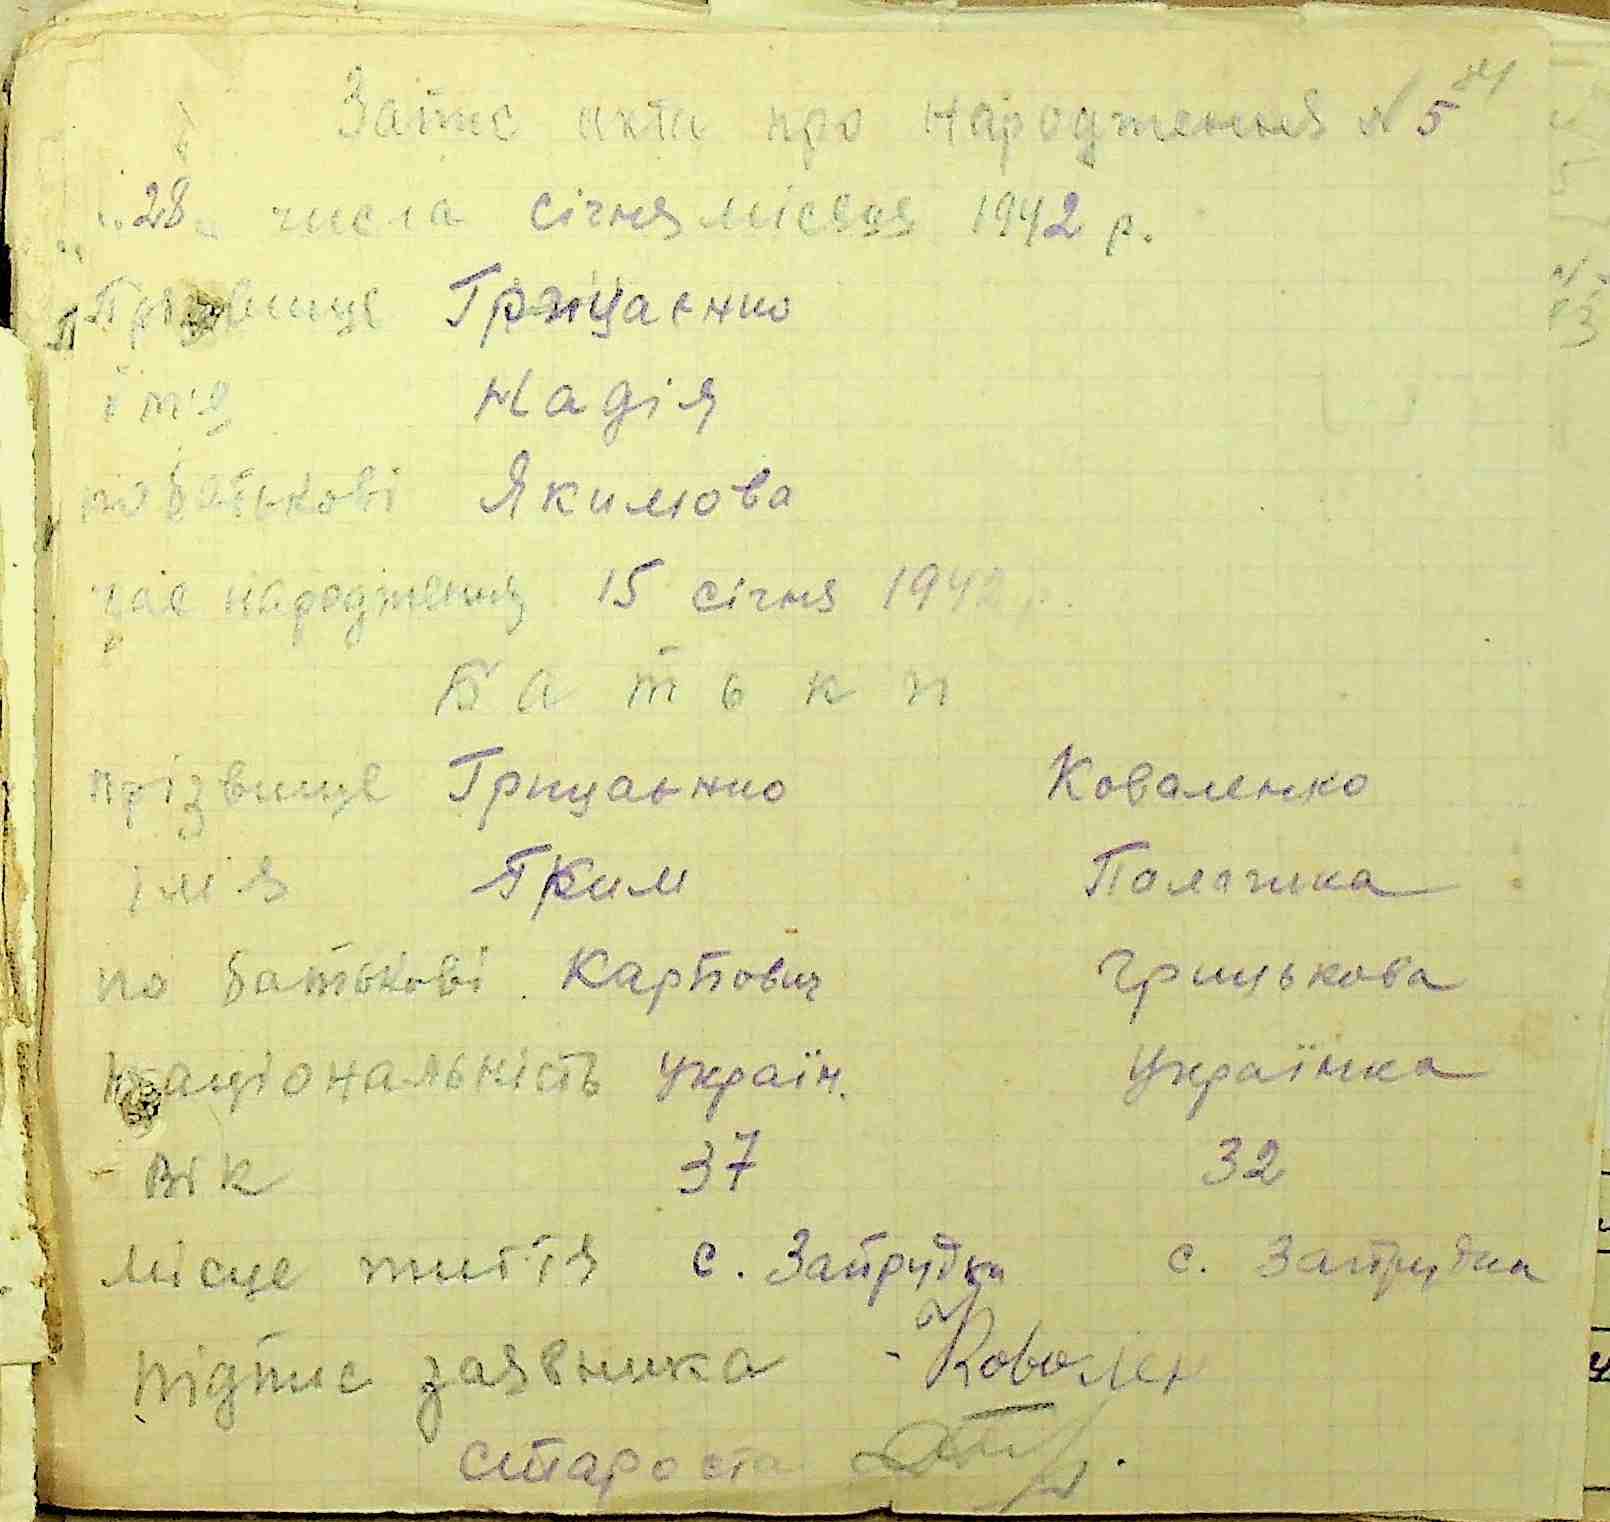 84
Запис акта про народження N 5
"28" числа січня місяця 1942 р.
Прізвище Грицаєнко
імя Надія
по батькові Якимова
час народження 15 січня 1942 р.
Батьки
прізвище Грицаєнко Коваленко
імя Яким Палажка
по батькові Карпович Грицькова
національність україн. Українка
Вік 37 32
місце життя с. Запрудка с. Запрудка
підпис заявника Ковален
староста